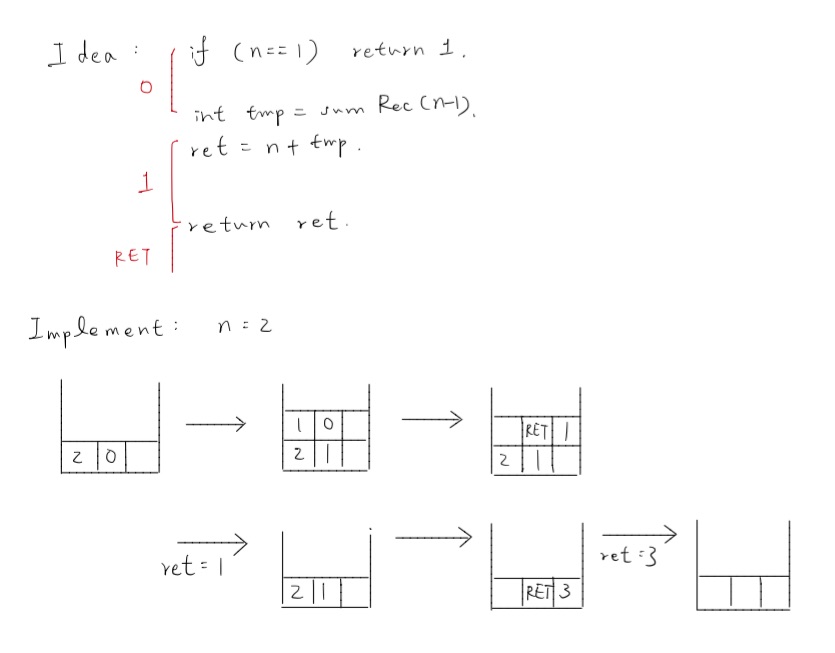 Idea : if (n==1) return 1.
0
int tmp = sum Rec (n-1).
ret = n + tmp.
1
return ret.
RET
Implement: n = 2
1 0 RET 1
2 0 2 1 2 1
ret = 1 ret = 3
2 1 RET 3